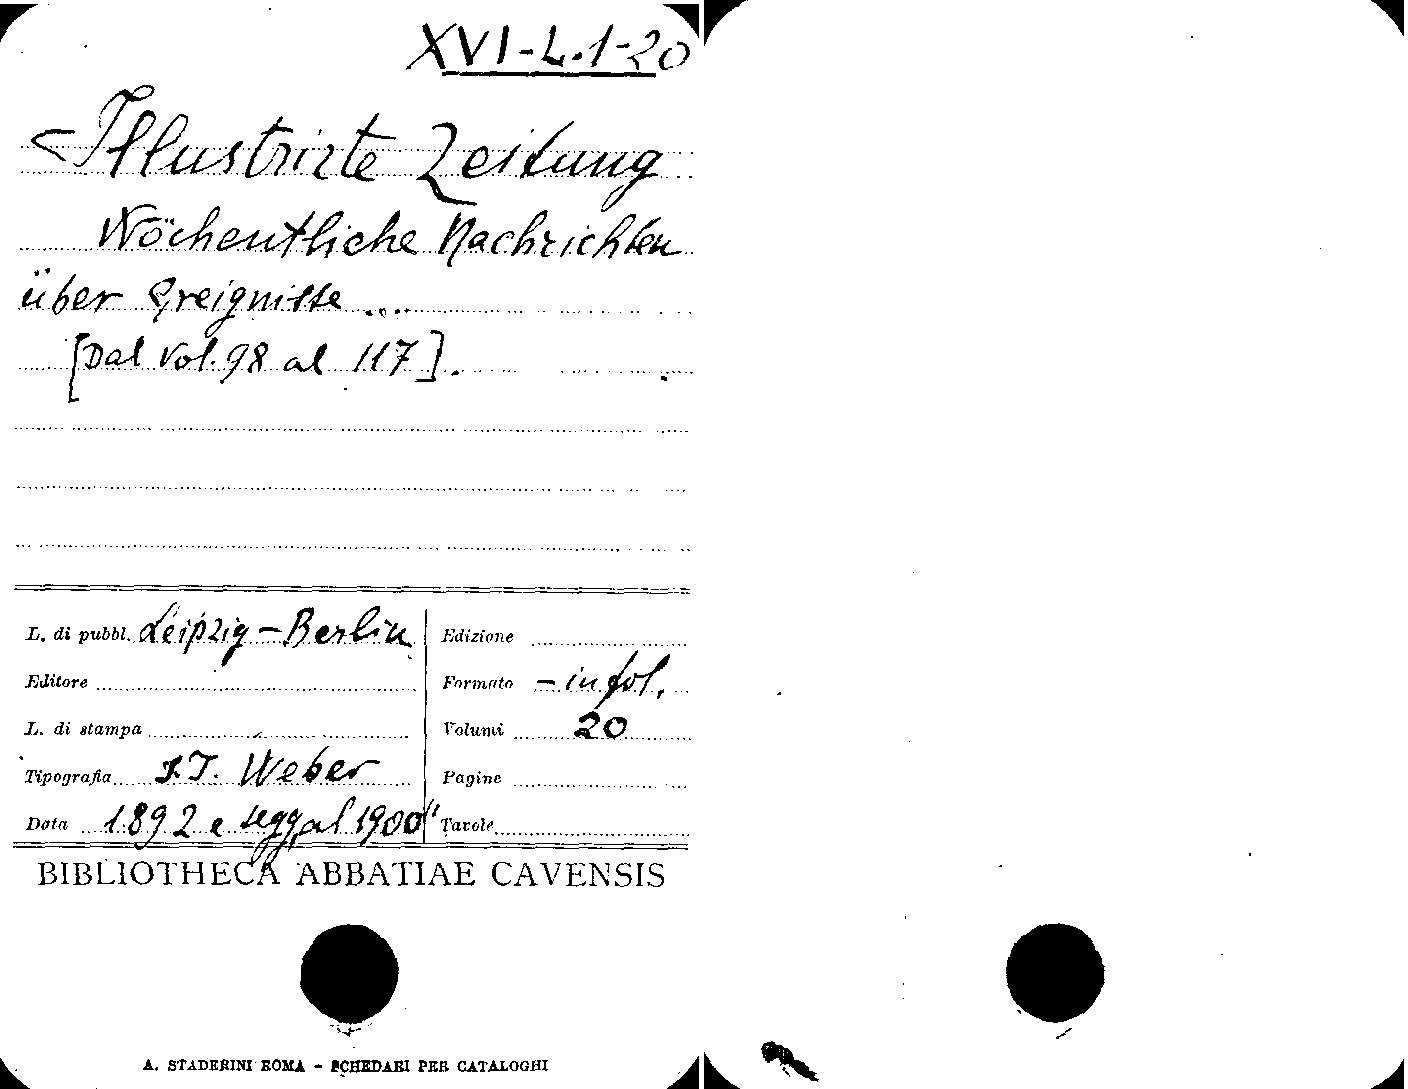 XVI-L.1-20
<Illustrirte Zeitung
Wöchentliche Nachrichten
über Ereignisse ....
[Dal vol. 98 al 117].
L. di pubbl. Leipzig - Berlin
Editore
L. di stampa
Tipografia J.J. Weber
Data 1892 e segg. al 1900
Edizione
Formato - in fol.
Volumi 20
Pagine
Tavole
BIBLIOTHECA ABBATIAE CAVENSIS
A. STADERINI ROMA - SCHEDARI PER CATALOGHI